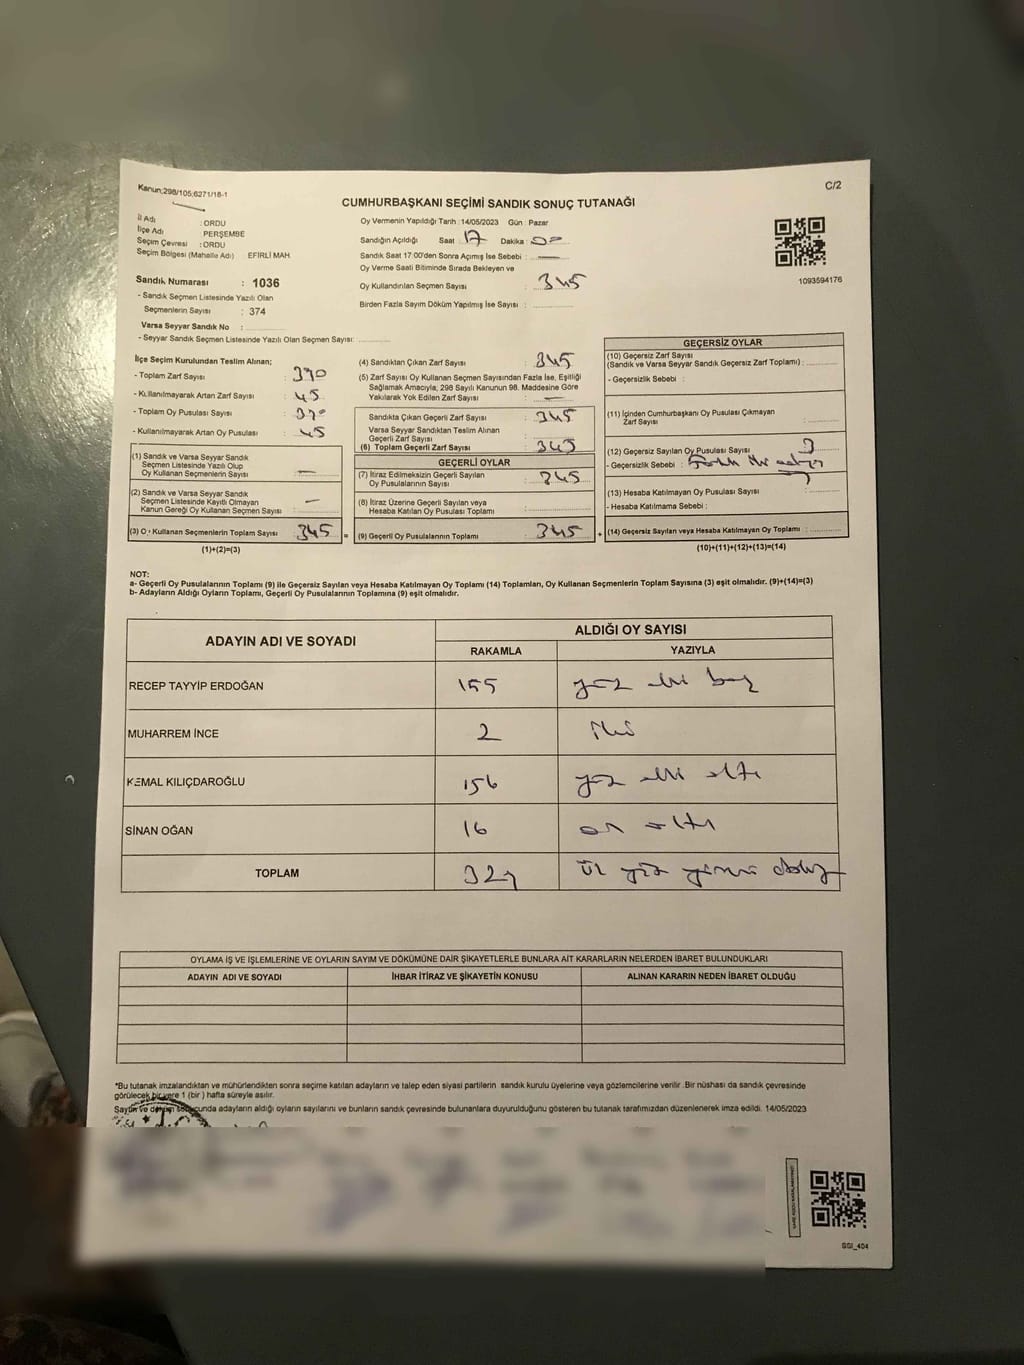 Kanun;298/105;6271/18-1
C/2
CUMHURBAŞKANI SEÇİMİ SANDIK SONUÇ TUTANAĞI
İl Adı : ORDU
İlçe Adı PERŞEMBE
Seçim Çevresi : ORDU
Seçim Bölgesi (Mahalle Adı) : EFİRLİ MAH.
Sandık Numarası : 1036
- Sandık Seçmen Listesinde Yazılı Olan
Seçmenlerin Sayısı : 374
Varsa Seyyar Sandık No :
- Seyyar Sandık Seçmen Listesinde Yazılı Olan Seçmen Sayısı:
Oy Vermenin Yapıldığı Tarih :14/05/2023 Gün : Pazar
Sandığın Açıldığı Saat 17 Dakika : 00
Sandık Saat 17:00'den Sonra Açımış İse Sebebi : —
Oy Verme Saati Bitiminde Sırada Bekleyen ve
Oy Kullandırılan Seçmen Sayısı : 345
Birden Fazla Sayım Döküm Yapılmış İse Sayısı :
1093594176
İlçe Seçim Kurulundan Teslim Alınan;
- Toplam Zarf Sayısı : 390
- Kullanılmayarak Artan Zarf Sayısı : 45
- Toplam Oy Pusulası Sayısı :
- Kullanılmayarak Artan Oy Pusulası : 45
(1) Sandık ve Varsa Seyyar Sandık
Seçmen Listesinde Yazılı Olup
Oy Kullanan Seçmenlerin Sayısı : —
(2) Sandık ve Varsa Seyyar Sandık
Seçmen Listesinde Kayıtlı Olmayan
Kanun Gereği Oy Kullanan Seçmen Sayısı : —
(3) Oy Kullanan Seçmenlerin Toplam Sayısı : 345
(1)+(2)=(3)
(4) Sandıktan Çıkan Zarf Sayısı : 345
(5) Zarf Sayısı Oy Kullanan Seçmen Sayısından Fazla İse, Eşitliği
Sağlamak Amacıyla, 298 Sayılı Kanunun 98. Maddesine Göre
Yakılarak Yok Edilen Zarf Sayısı : —
Sandıkta Çıkan Geçerli Zarf Sayısı : 345
Varsa Seyyar Sandıktan Teslim Alınan
Geçerli Zarf Sayısı
(6) Toplam Geçerli Zarf Sayısı : 345
GEÇERLİ OYLAR
(7) İtiraz Edilmeksizin Geçerli Sayılan
Oy Pusulalarının Sayısı : 345
(8) İtiraz Üzerine Geçerli Sayılan veya
Hesaba Katılan Oy Pusulası Toplamı :
= (9) Geçerli Oy Pusulalarının Toplamı : 345 +
GEÇERSİZ OYLAR
(10) Geçersiz Zarf Sayısı
(Sandık ve Varsa Seyyar Sandık Geçersiz Zarf Toplamı) :
- Geçersizlik Sebebi :
(11) İçinden Cumhurbaşkanı Oy Pusulası Çıkmayan
Zarf Sayısı :
(12) Geçersiz Sayılan Oy Pusulası Sayısı :
- Geçersizlik Sebebi :
(13) Hesaba Katılmayan Oy Pusulası Sayısı :
- Hesaba Katılmama Sebebi :
(14) Geçersiz Sayılan veya Hesaba Katılmayan Oy Toplamı :
(10)+(11)+(12)+(13)=(14)
NOT:
a- Geçerli Oy Pusulalarının Toplamı (9) ile Geçersiz Sayılan veya Hesaba Katılmayan Oy Toplamı (14) Toplamları, Oy Kullanan Seçmenlerin Toplam Sayısına (3) eşit olmalıdır. (9)+(14)=(3)
b- Adayların Aldığı Oyların Toplamı, Geçerli Oy Pusulalarının Toplamına (9) eşit olmalıdır.
ADAYIN ADI VE SOYADI
ALDIĞI OY SAYISI
RAKAMLA YAZIYLA
RECEP TAYYİP ERDOĞAN 155 yüz elli beş
MUHARREM İNCE 2 iki
KEMAL KILIÇDAROĞLU 156 yüz elli altı
SİNAN OĞAN 16 on altı
TOPLAM 329 üç yüz yirmi dokuz
OYLAMA İŞ VE İŞLEMLERİNE VE OYLARIN SAYIM VE DÖKÜMÜNE DAİR ŞİKAYETLERLE BUNLARA AİT KARARLARIN NELERDEN İBARET BULUNDUKLARI
ADAYIN ADI VE SOYADI İHBAR İTİRAZ VE ŞİKAYETİN KONUSU ALINAN KARARIN NEDEN İBARET OLDUĞU
*Bu tutanak imzalandıktan ve mühürlendikten sonra seçime katılan adayların ve talep eden siyasi partilerin sandık kurulu üyelerine veya gözlemcilerine verilir .Bir nüshası da sandık çevresinde
görülecek bir yere 1 (bir ) hafta süreyle asılır.
Sayım ve döküm sonucunda adayların aldığı oyların sayılarını ve bunların sandık çevresinde bulunanlara duyurulduğunu gösteren bu tutanak tarafımızdan düzenlenerek imza edildi. 14/05/2023
SSI_404